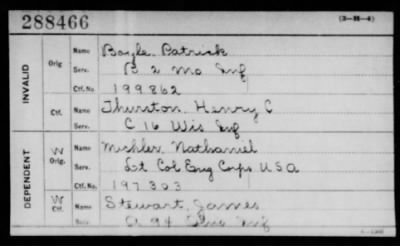 288466 (3-H-4)
INVALID
Orig Name Boyle, Patrick
Serv. B 2 Mo Inf
Ctf. No. 199862
Ctf. Name Thurston, Henry C
Serv. C 16 Wis Inf
DEPENDENT
W Orig. Name Michler, Nathaniel
Serv. Lt Col Eng Corps U S A
Ctf. No. 197303
W Ctf. Name Stewart, James
Serv. 94 Ohio Inf